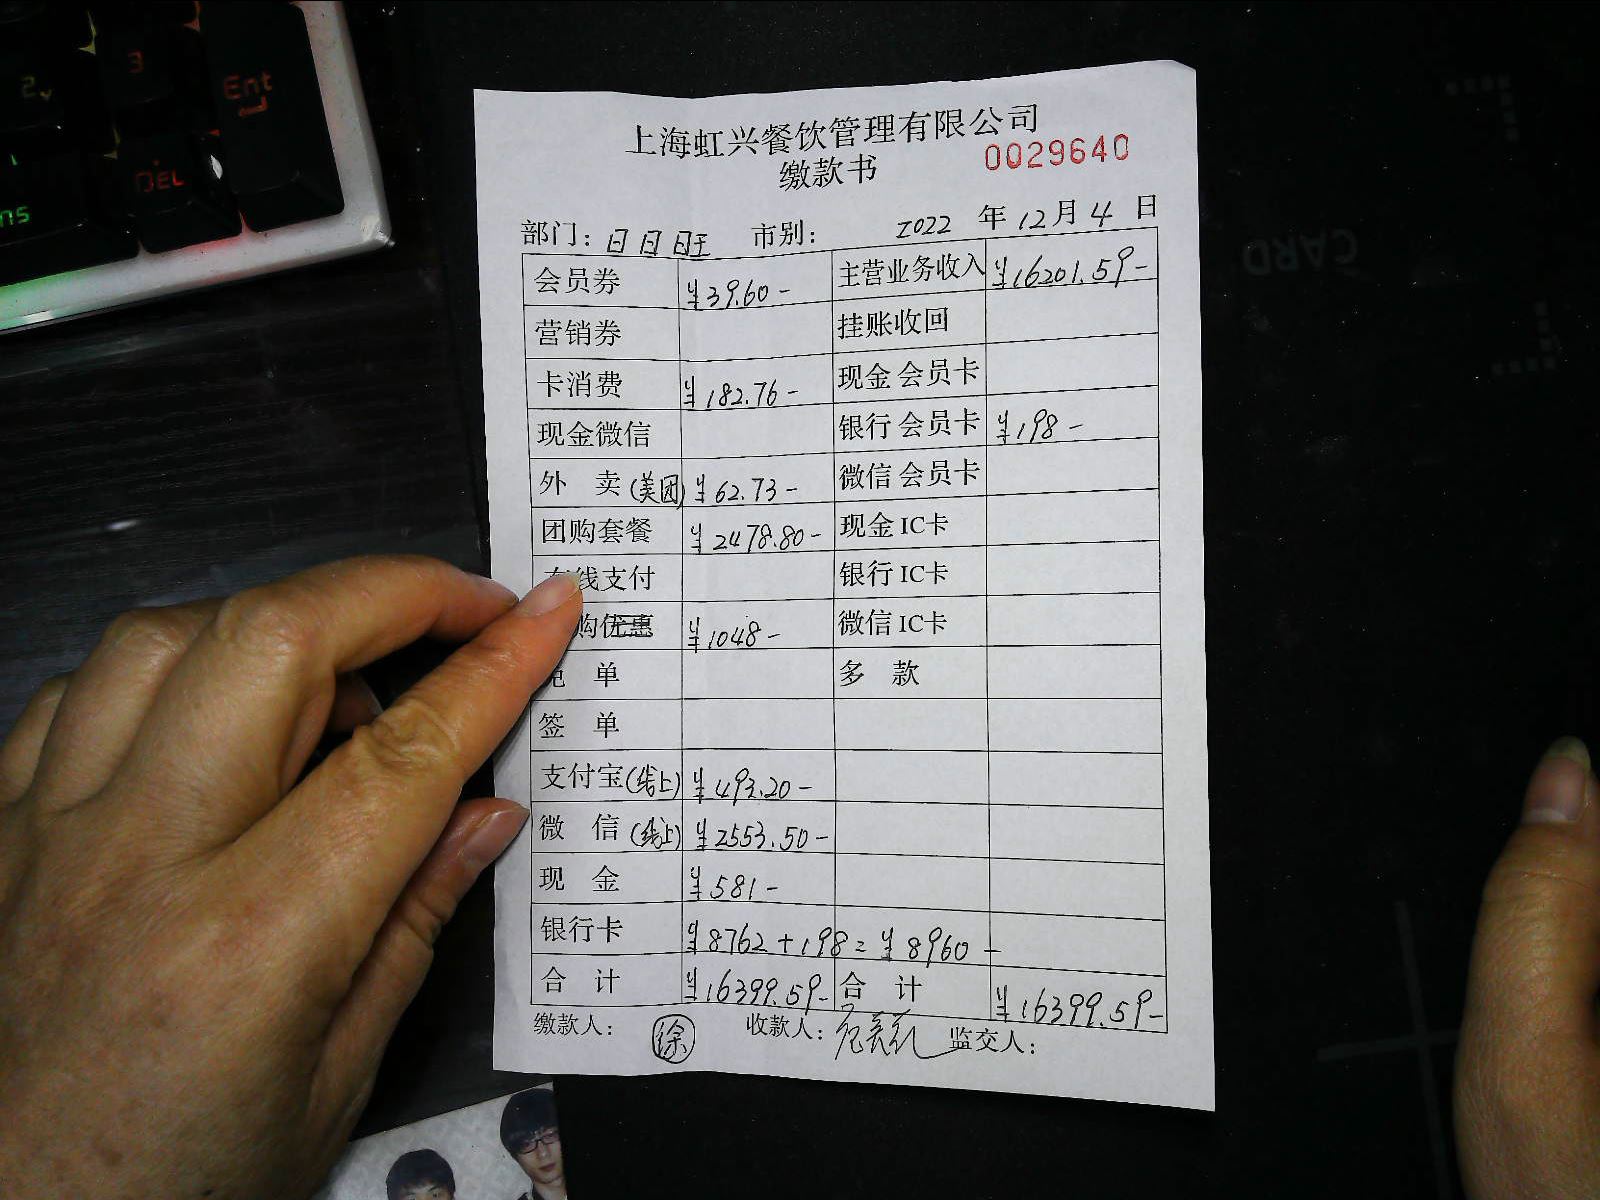 2
3
Ent
DEL
ns
CARD
上海虹兴餐饮管理有限公司
缴款书 0029640
部门：日日旺 市别： 2022 年 12 月 4 日
会员券 ¥39.60- 主营业务收入 ¥16201.59-
营销券 挂账收回
卡消费 ¥182.76- 现金会员卡
现金微信 银行会员卡 ¥198-
外 卖(美团) ¥62.73- 微信会员卡
团购套餐 ¥2478.80- 现金IC卡
线支付 银行IC卡
购优惠 ¥1048- 微信IC卡
单 多 款
签 单
支付宝(线上) ¥493.20-
微 信(线上) ¥2553.50-
现 金 ¥581-
银行卡 ¥8762+198=¥8960-
合 计 ¥16399.59- 合 计 ¥16399.59-
缴款人： 徐 收款人： 监交人：